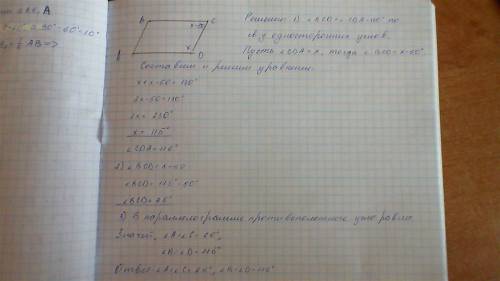 A
30°-60°=10°
½ AB=>
B C
x-50
x
A D
Решение: 1) ∠BCD=∠CDA-50° по
св. у односторонних углов.
Пусть ∠CDA=x, тогда ∠BCD=x-50°
Составим и решим уравнение:
x+x-50=180°
2x-50=180°
2x=230°
x=115°
∠CDA=115°
2) ∠BCD=x-50
∠BCD=115°-50°
∠BCD=65°
3) В параллелограмме противоположные углы равны.
Значит, ∠A=∠C=65°,
∠B=∠D=115°
Ответ: ∠A=∠C=65°, ∠B=∠D=115°